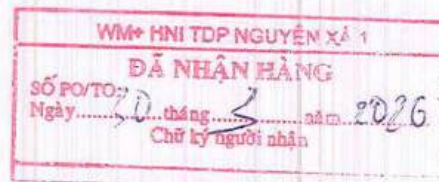 WM+ HNI TDP NGUYÊN XÁ 1
ĐÃ NHẬN HÀNG
SỐ PO/TO:
Ngày 30 tháng 5 năm 2026
Chữ ký người nhận